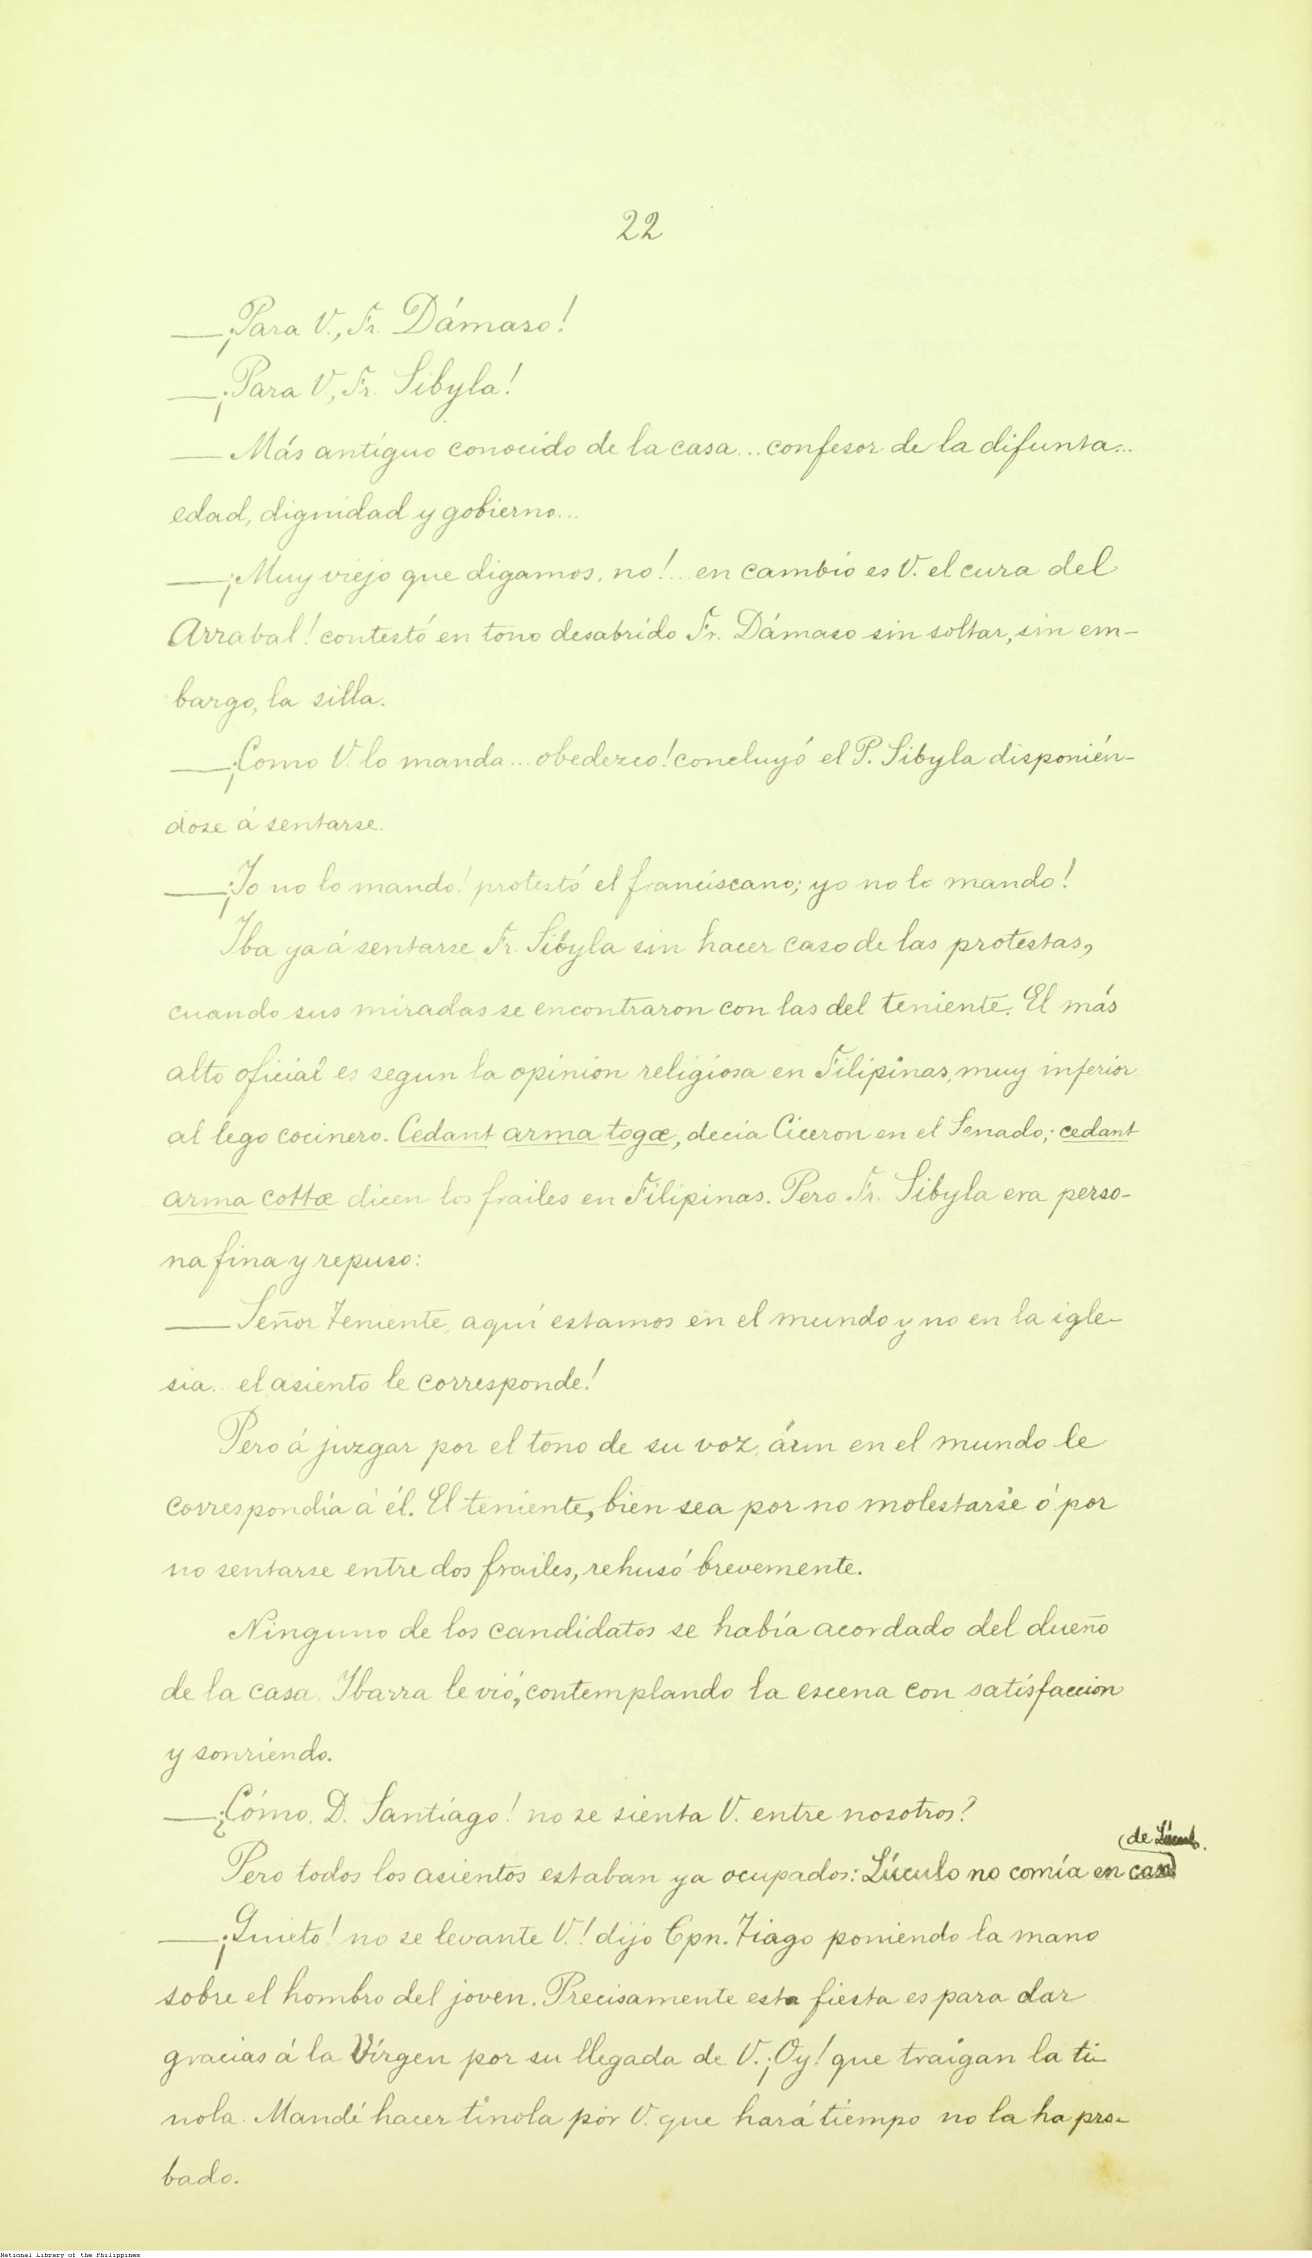 22
—¡Para V., Fr. Dámaso!
—¡Para V., Fr. Sibyla!
— Más antiguo conocido de la casa... confesor de la difunta...
edad, dignidad y gobierno...
—¡Muy viejo que digamos, no!... en cambio es V. el cura del
Arrabal! contestó en tono desabrido Fr. Dámaso sin soltar, sin em-
bargo, la silla.
—¡Como V. lo manda... obedezco! concluyó el P. Sibyla disponién-
dose á sentarse.
—¡Yo no lo mando! protestó el franciscano; yo no lo mando!
Iba ya á sentarse Fr. Sibyla sin hacer caso de las protestas,
cuando sus miradas se encontraron con las del teniente. El más
alto oficial es segun la opinion religiosa en Filipinas, muy inferior
al lego cocinero. Cedant arma togæ, decía Ciceron en el Senado; cedant
arma cottæ dicen los frailes en Filipinas. Pero Fr. Sibyla era perso-
na fina y repuso:
— Señor Teniente, aquí estamos en el mundo y no en la igle-
sia... el asiento le corresponde!
Pero á juzgar por el tono de su voz, áun en el mundo le
correspondía á él. El teniente, bien sea por no molestarse ó por
no sentarse entre dos frailes, rehusó brevemente.
Ninguno de los candidatos se había acordado del dueño
de la casa. Ibarra le vió, contemplando la escena con satisfaccion
y sonriendo.
—¿Cómo, D. Santiago! no se sienta V. entre nosotros?
de
Pero todos los asientos estaban ya ocupados: Lúculo no comía en casa
—¡Quieto! no se levante V.! dijo Cpn. Tiago poniendo la mano
sobre el hombro del joven. Precisamente esta fiesta es para dar
gracias á la Vírgen por su llegada de V. ¡Oy! que traigan la ti-
nola. Mandé hacer tinola por V. que hará tiempo no la ha pro-
bado.
National Library of the Philippines